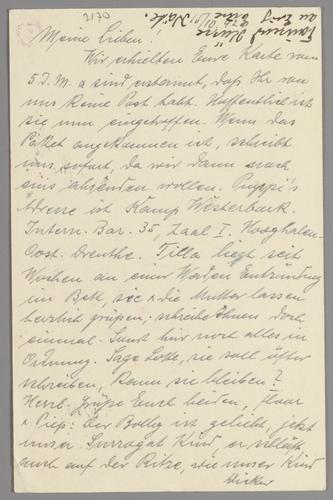 2170
Meine Lieben!
Wir erhielten Eure Karte vom
5 D. M. u sind erstaunt, daß Ihr von
uns keine Post habt. Hoffentlich ist
sie nun eingetroffen. Wenn das
Paket angekommen ist, schreibt
uns sofort, da wir dann noch
eins absenden wollen. Puppi's
Adresse ist Kamp Westerbork.
Intern. Bar. 35, Zaal I. Hooghalen-
Oost. Drenthe. Tilla liegt seit
Wochen an einer Waden Entzündung
im Bett, sie & die Mutter lassen
herzlich grüßen; schreibt Ihnen doch
einmal. Sonst hier noch alles in
Ordnung. Sage Lotte, sie soll öfter
schreiben, kann sie bleiben?
Herzl. Grüße Euch beiden,
& Piep: Der Bolly ist geliebt, jetzt
unser Surrogat Kind, er schläft
auch auf der Ritze, wie unser Kind